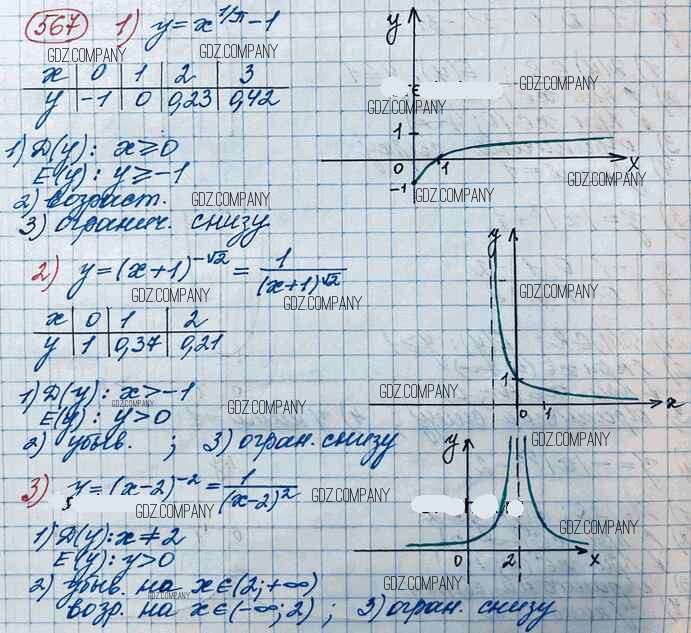 567 1) y = x^(1/π) - 1
GDZ.COMPANY GDZ.COMPANY
x 0 1 2 3
y -1 0 0,23 0,42
1) D(y): x ⩾ 0
GDZ.COMPANY
E(y): y ⩾ -1
2) возраст. GDZ.COMPANY
3) огранич. снизу
y
GDZ.COMPANY
GDZ.COMPANY
1
0 1 x
GDZ.COMPANY
-1 GDZ.COMPANY
2) y = (x+1)^(-√2) = 1/(x+1)^(√2)
GDZ.COMPANY GDZ.COMPANY
x 0 1 2
y 1 0,37 0,21
1) D(y): x > -1
GDZ.COMPANY GDZ.COMPANY
E(y): y > 0
2) убыв. ; 3) огран. снизу
y
GDZ.COMPANY
GDZ.COMPANY
1
0 1 x
3) y = (x-2)^(-2) = 1/(x-2)^2
GDZ.COMPANY GDZ.COMPANY
1) D(y): x ≠ 2
E(y): y > 0
2) убыв. на x∈(2;+∞)
GDZ.COMPANY
возр. на x∈(-∞;2) ; 3) огран. снизу
y GDZ.COMPANY
GDZ.COMPANY
0 2 x
GDZ.COMPANY